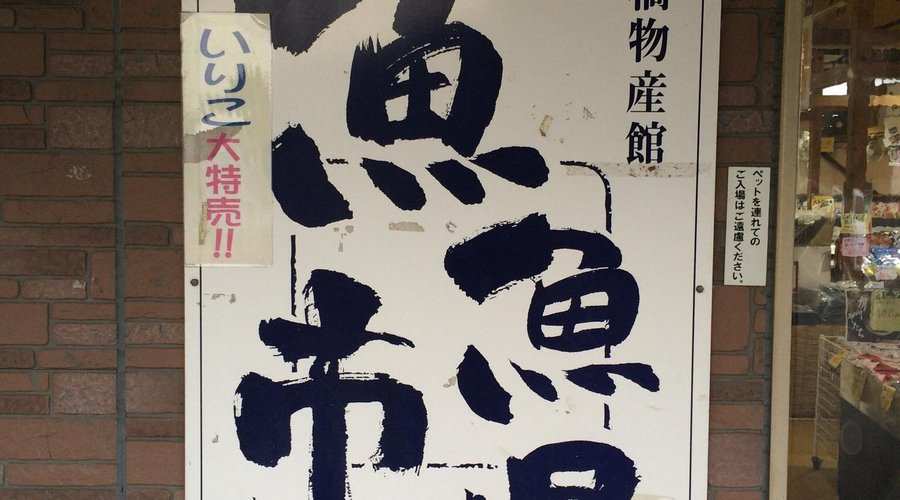 物産館
魚
魚
市
いりこ
大特売!!
ペットを連れての
ご入場はご遠慮ください。